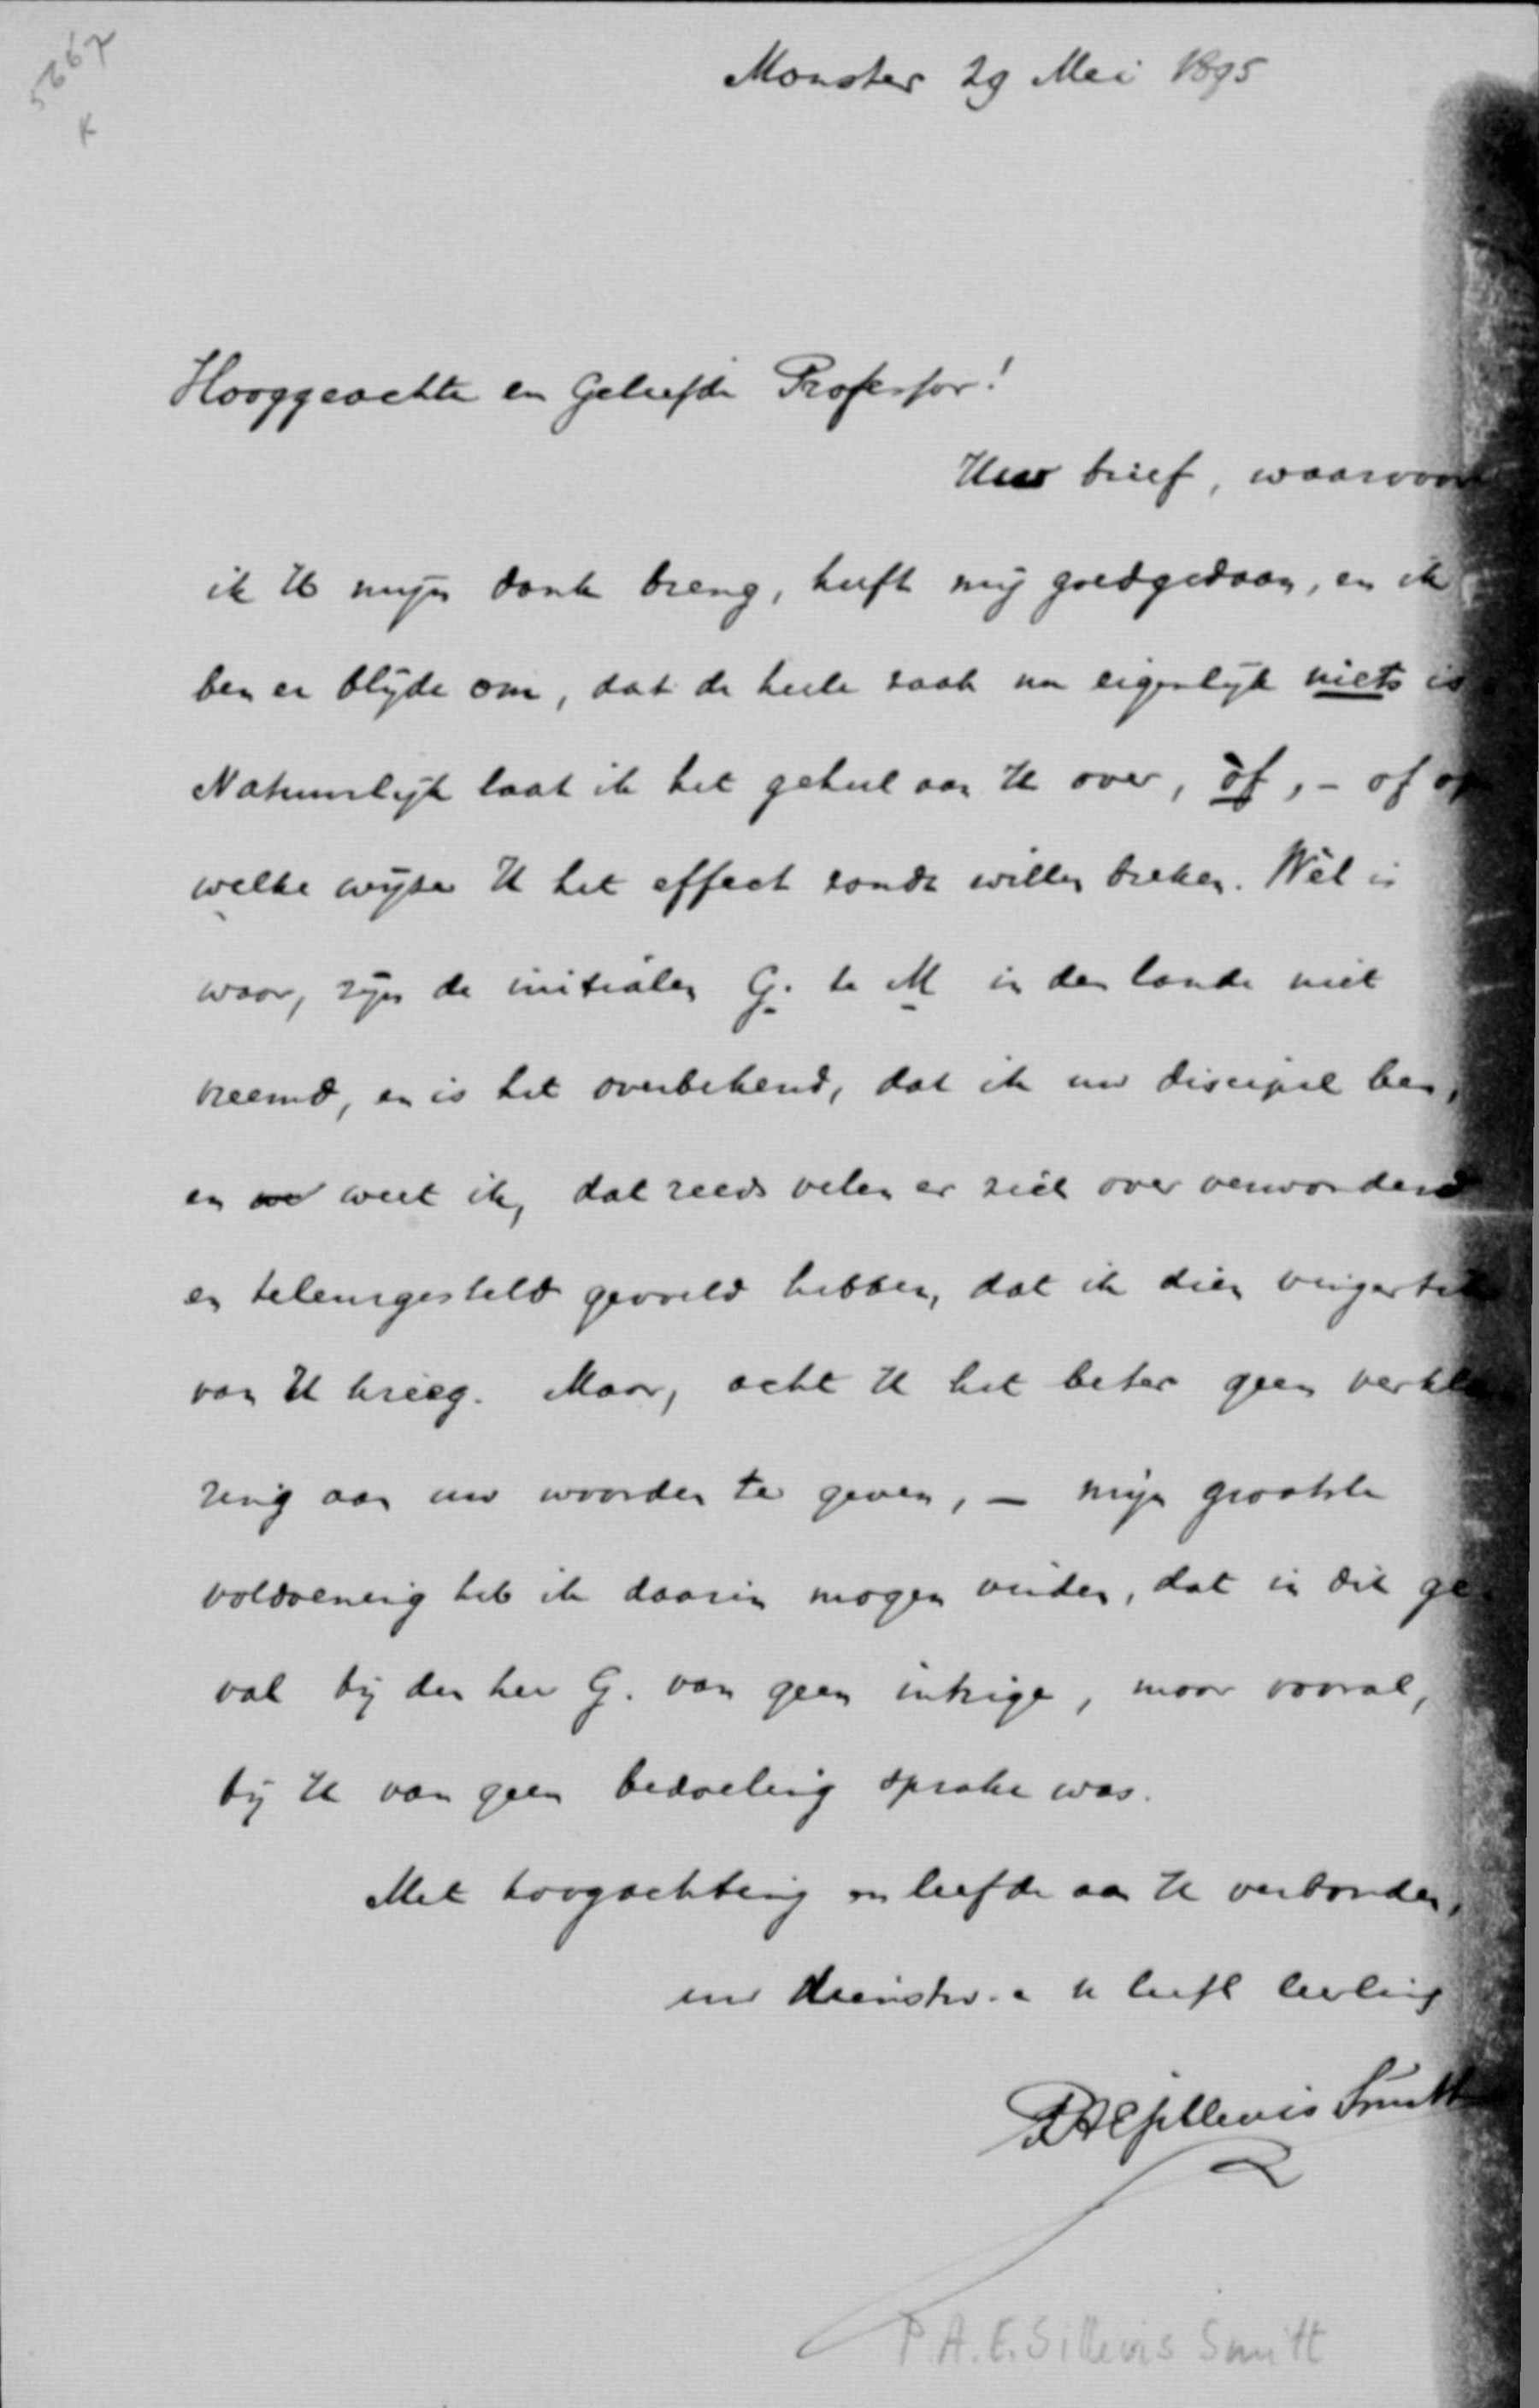 5667
K
Monster 29 Mei 1895
Hooggeachte en Geliefde Professor!
Uw brief, waarvoor
ik U mijn dank breng, heeft mij goedgedaan, en ik
ben er blijde om, dat de heele zaak nu eigenlijk niets is
Natuurlijk laat ik het geheel aan U over, òf, - of op
welke wijze U het effect zoudt willen breken. Wèl is
waar, zijn de initialen G. te M in den lande niet
vreemd, en is het overbekend, dat ik uw discipel ben,
en weet ik, dat reeds velen er zich over verwonderd
en teleurgesteld gevoeld hebben, dat ik dien vingertik
van U kreeg. Maar, acht U het beter geen verkla
ring aan uw woorden te geven, — mijn grootste
voldoening heb ik daarin mogen vinden, dat in dit ge-
val bij den heer G. van geen intrige, maar vooral,
bij U van geen bedoeling sprake was.
Met hoogachting en liefde aan U verbonden,
uw dienstw. e U liefh leerling
PAESillevis Smitt
P.A.E. Sillevis Smitt